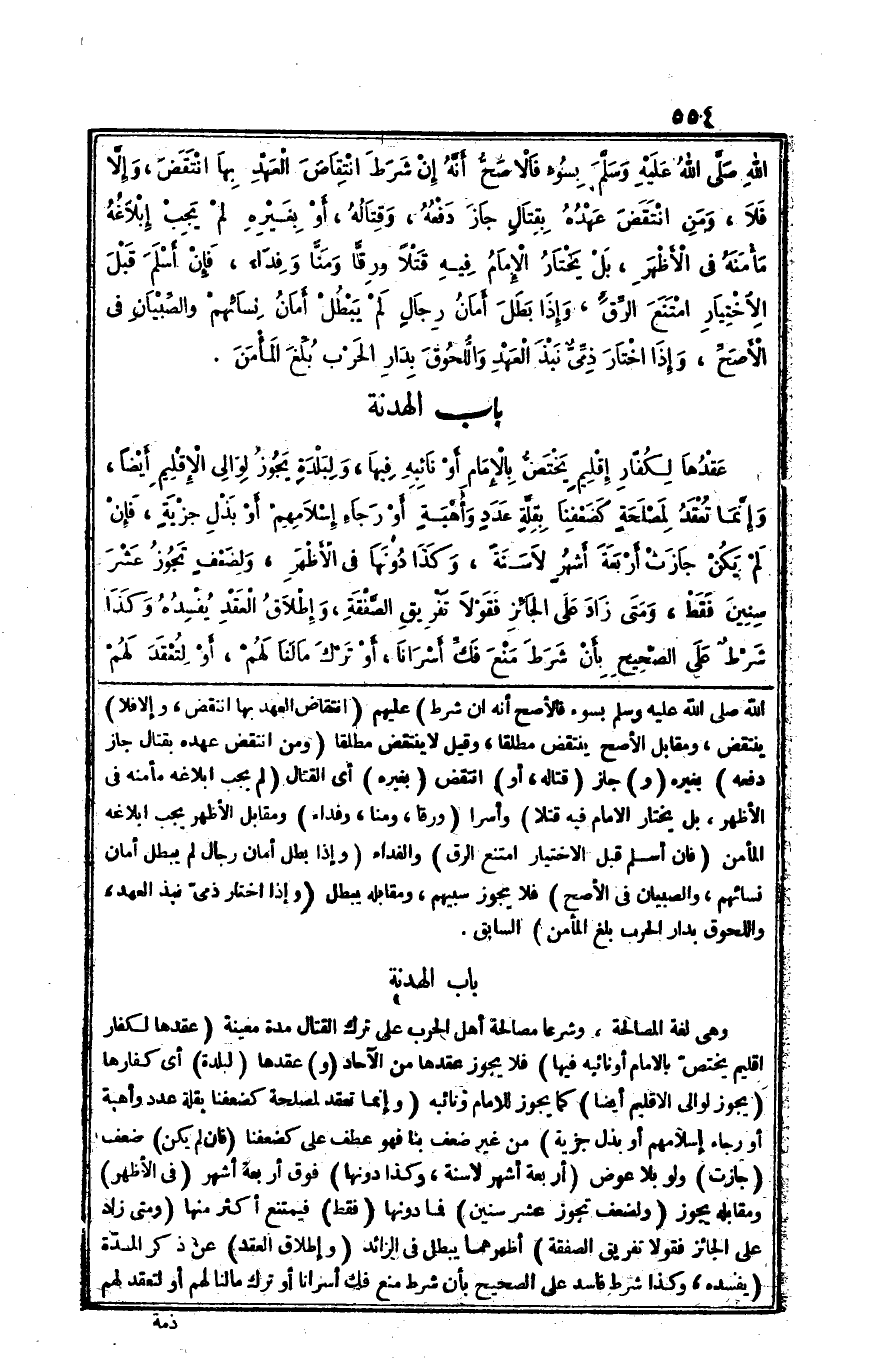 ٥٥٤
اللهِ صَلَّى اللهُ عَلَيْهِ وَسَلَّمَ بِسُوءٍ فَالْأَصَحُّ أَنَّهُ إِنْ شَرَطَ انْتِقَاضَ الْعَهْدِ بِهَا انْتَقَضَ ، وَإِلَّا
فَلَا ، وَمَنِ انْتَقَضَ عَهْدُهُ بِقِتَالٍ جَازَ دَفْعُهُ ، وَقِتَالُهُ ، أَوْ بِغَيْرِهِ لَمْ يَجِبْ إِبْلَاغُهُ
مَأْمَنَهُ فِى الْأَظْهَرِ ، بَلْ يَخْتَارُ الْإِمَامُ فِيهِ قَتْلًا وَرِقًّا وَمَنًّا وَفِدَاءً ، فَإِنْ أَسْلَمَ قَبْلَ
الِاخْتِيَارِ امْتَنَعَ الرِّقُّ ، وَإِذَا بَطَلَ أَمَانُ رِجَالٍ لَمْ يَبْطُلْ أَمَانُ نِسَائِهِمْ والصِّبْيَانِ فِى
الْأَصَحِّ ، وَإِذَا اخْتَارَ ذِمِّىٌّ نَبْذَ الْعَهْدِ وَاللُّحُوقَ بِدَارِ الحَرْبِ بُلِّغَ المَأْمَنَ .
باب الهدنة
عَقْدُهَا لِكُفَّارِ إِقْلِيمٍ يَخْتَصُّ بِالْإِمَامِ أَوْ نَائِبِهِ فِيهَا ، وَلِبَلْدَةٍ يَجُوزُ لِوَالِى الْإِقْلِيمِ أَيْضًا ،
وَإِنَّمَا تُعْقَدُ لِمَصْلَحَةٍ كَضَعْفِنَا بِقِلَّةِ عَدَدٍ وَأُهْبَةٍ أَوْ رَجَاءِ إِسْلَامِهِمْ أَوْ بَذْلِ جِزْيَةٍ ، فَإِنْ
لَمْ يَكُنْ جَازَتْ أَرْبَعَةَ أَشْهُرٍ لَا سَنَةً ، وَكَذَا دُونَهَا فِى الْأَظْهَرِ ، وَلِضَعْفٍ تَجُوزُ عَشْرَ
سِنِينَ فَقَطْ ، وَمَتَى زَادَ عَلَى الجَائِزِ فَقَوْلَا تَفْرِيقِ الصَّفْقَةِ ، وَإِطْلَاقُ الْعَقْدِ يُفْسِدُهُ وَكَذَا
شَرْطٌ عَلَى الصَّحِيحِ بِأَنْ شَرَطَ مَنْعَ فَكِّ أَسْرَانَا ، أَوْ تَرْكَ مَالِنَا لَهُمْ ، أَوْ لِتُعْقَدَ لَهُمْ
الله صلى الله عليه وسلم بسوء فالأصح أنه ان شرط ) عليهم ( انتقاض العهد بها انتقض ، وإلا فلا )
ينتقض ، ومقابل الأصح ينتقض مطلقا ، وقيل لا ينتقض مطلقا ( ومن انتقض عهده بقتال جاز
دفعه ) بغيره ( و ) جاز ( قتاله ، أو ) انتقض ( بغيره ) أى القتال ( لم يجب ابلاغه مأمنه فى
الأظهر ، بل يختار الامام فيه قتلا ) وأسرا ( ورقا ، ومنا ، وفداء ) ومقابل الأظهر يجب ابلاغه
المأمن ( فان أسلم قبل الاختيار امتنع الرق ) والفداء ( وإذا بطل أمان رجال لم يبطل أمان
نسائهم ، والصبيان فى الأصح ) فلا يجوز سبيهم ، ومقابله يبطل ( وإذا اختار ذمىّ نبذ العهد ،
واللحوق بدار الحرب بلغ المأمن ) السابق .
باب الهدنة
وهى لغة المصالحة ، وشرعا مصالحة أهل الحرب على ترك القتال مدة معينة ( عقدها لكفار
اقليم يختصّ بالامام أو نائبه فيها ) فلا يجوز عقدها من الآحاد ( و ) عقدها ( لبلدة ) أى كفارها
( يجوز لوالى الاقليم أيضا ) كما يجوز للامام ونائبه ( وإنما تعقد لمصلحة كضعفنا بقلة عدد وأهبة
أو رجاء إسلامهم أو بذل جزية ) من غير ضعف بنا فهو عطف على كضعفنا ( فان لم يكن ) ضعف
( جازت ) ولو بلا عوض ( أربعة أشهر لا سنة ، وكذا دونها ) فوق أربعة أشهر ( فى الأظهر )
ومقابله يجوز ( ولضعف تجوز عشر سنين ) فما دونها ( فقط ) فيمتنع أكثر منها ( ومتى زاد
على الجائز فقولا تفريق الصفقة ) أظهرهما يبطل فى الزائد ( وإطلاق العقد ) عن ذكر المدّة
( يفسده ، وكذا شرط فاسد على الصحيح بأن شرط منع فك أسرانا أو ترك مالنا لهم أو لتعقد لهم
ذمة